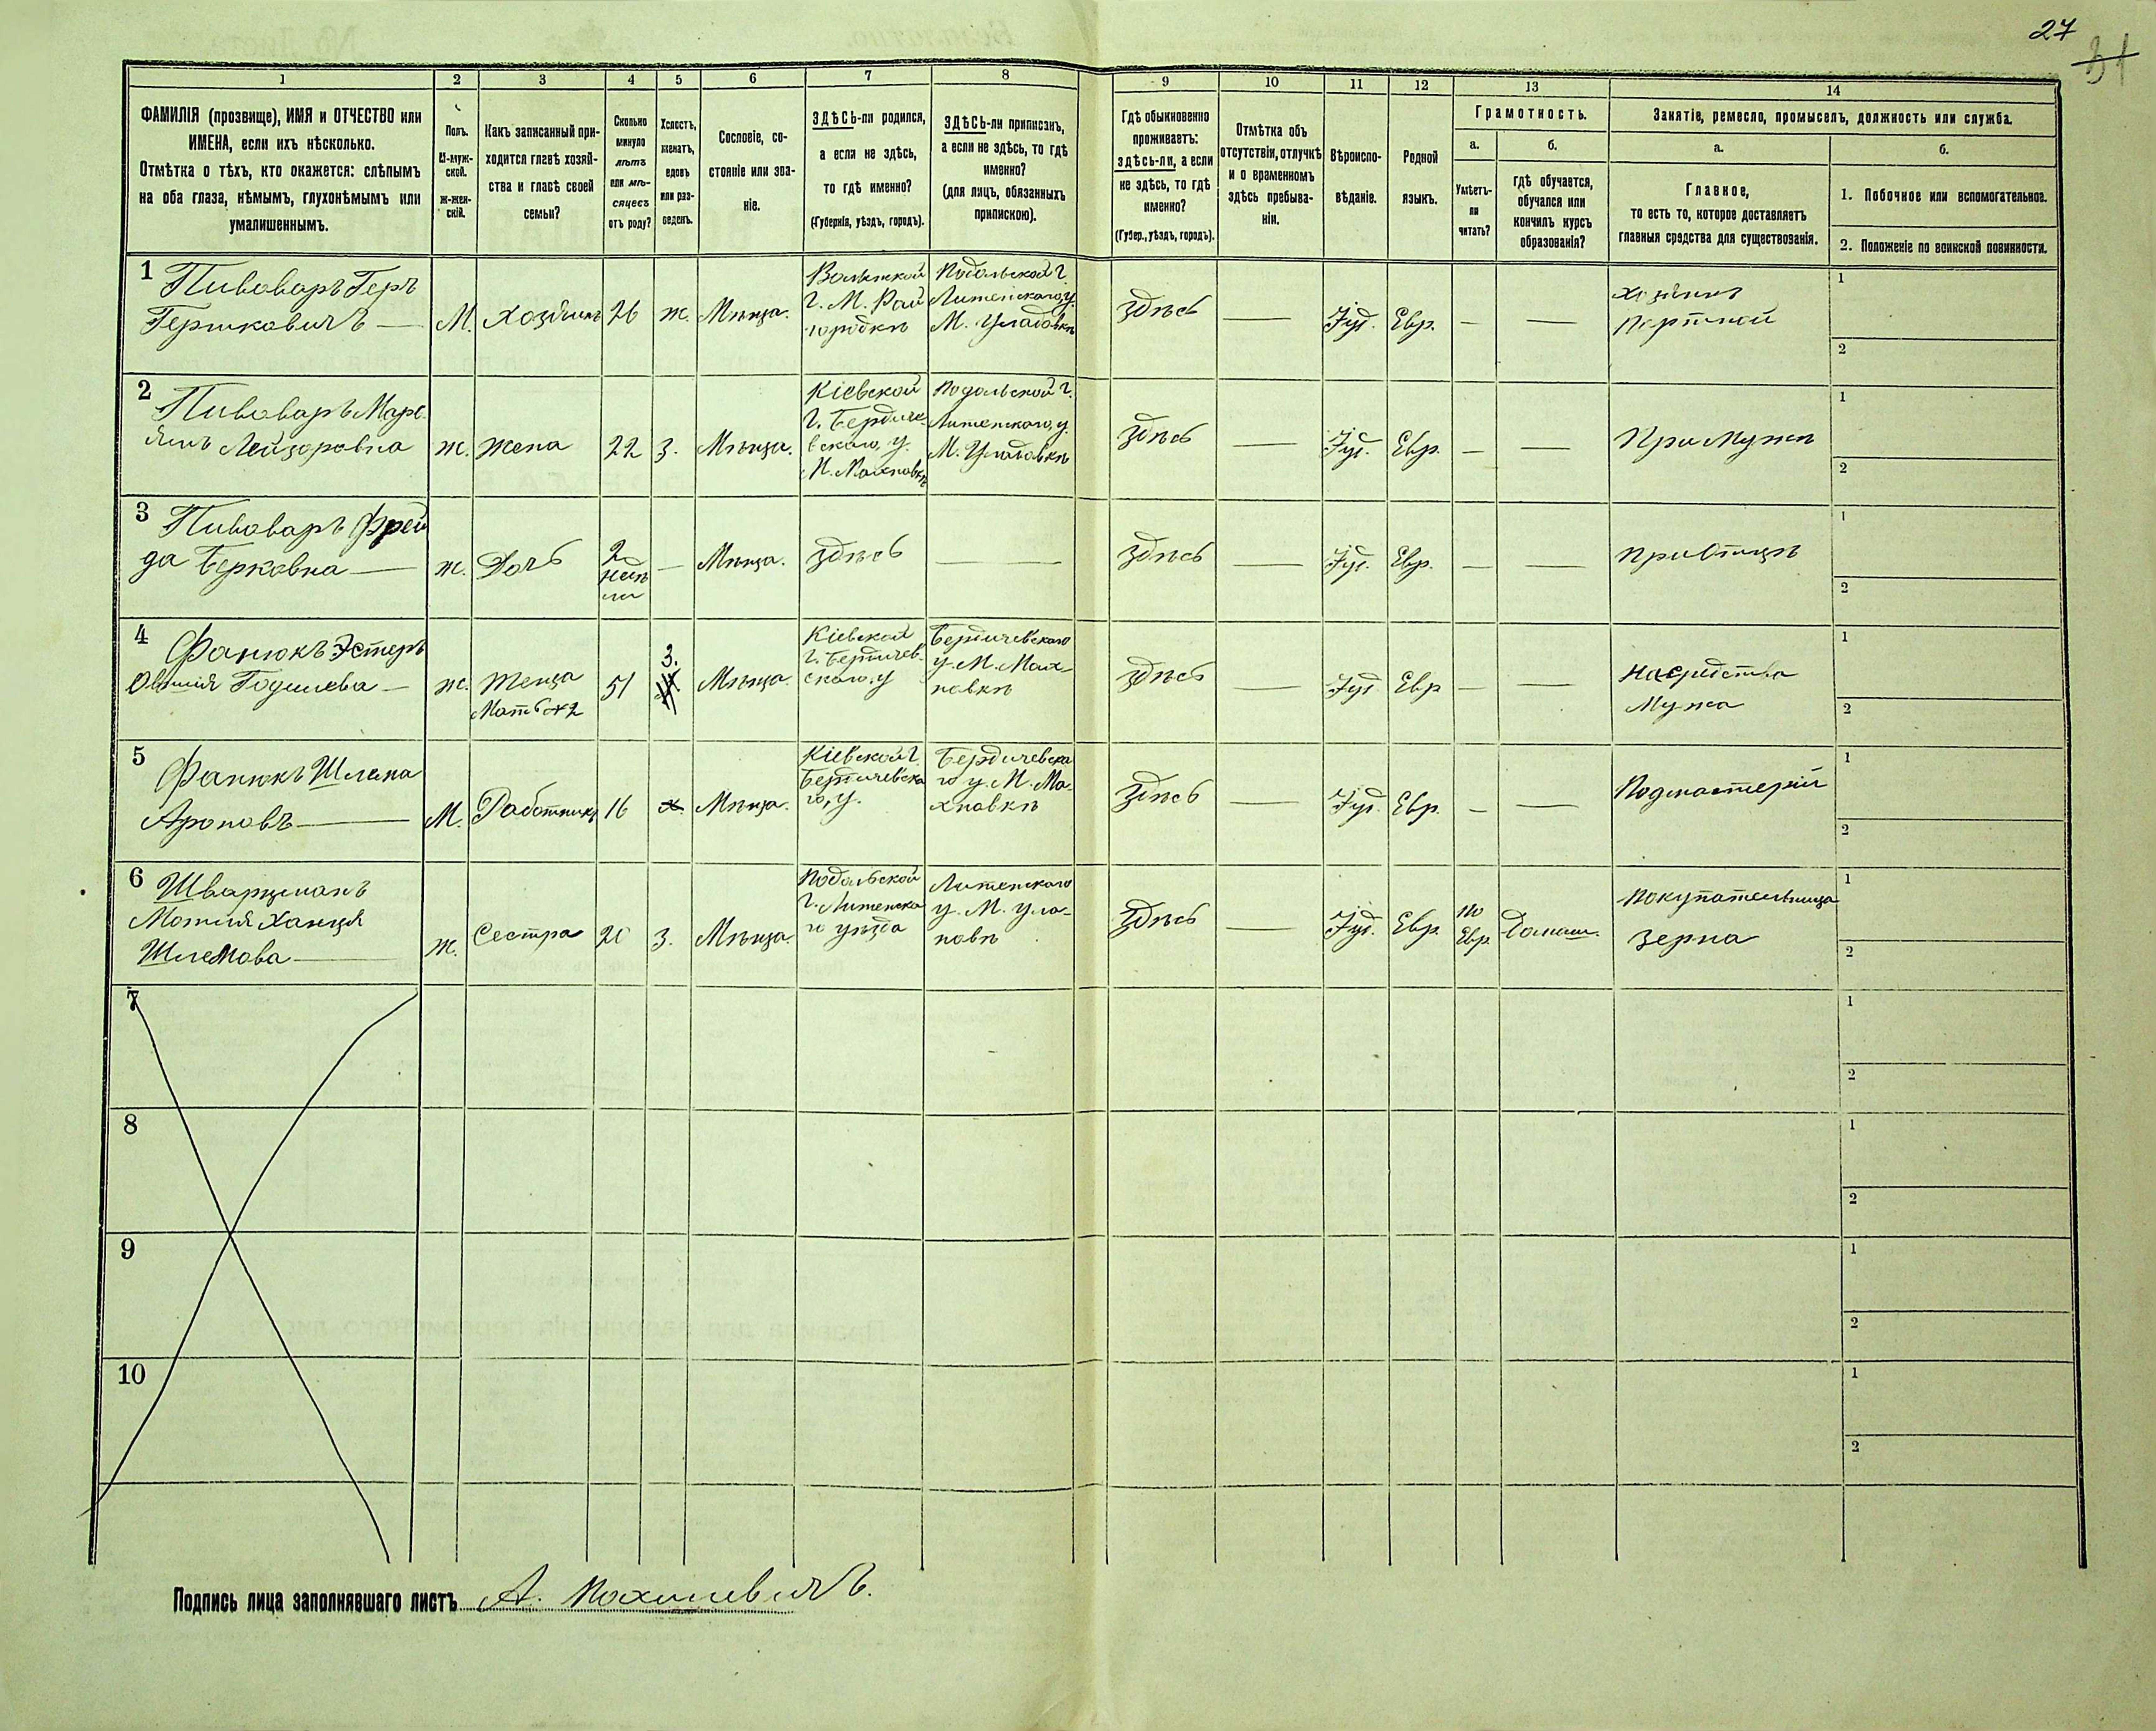 27
31
1 2 3 4 5 6 7 8 9 10 11 12 13 14
ФАМИЛІЯ (прозвище), ИМЯ и ОТЧЕСТВО или
ИМЕНА, если ихъ нѣсколько.
Отмѣтка о тѣхъ, кто окажется: слѣпымъ
на оба глаза, нѣмымъ, глухонѣмымъ или
умалишеннымъ.
Полъ.
М-муж-
ской.
Ж-жен-
скій.
Какъ записанный при-
ходится главѣ хозяй-
ства и главѣ своей
семьи?
Сколько
минуло
лѣтъ
или мѣ-
сяцевъ
отъ роду?
Холостъ,
женатъ,
вдовъ
или раз-
веденъ.
Сословіе, со-
стояніе или зва-
ніе.
ЗДѢСЬ-ли родился,
а если не здѣсь,
то гдѣ именно?
(Губернія, уѣздъ, городъ).
ЗДѢСЬ-ли приписанъ,
а если не здѣсь, то гдѣ
именно?
(для лицъ, обязанныхъ
припискою).
Гдѣ обыкновенно
проживаетъ:
здѣсь-ли, а если
не здѣсь, то гдѣ
именно?
(Губер., уѣздъ, городъ).
Отмѣтка объ
отсутствіи, отлучкѣ
и о временномъ
здѣсь пребыва-
ніи.
Вѣроиспо-
вѣданіе.
Родной
языкъ.
Грамотность.
а.
Умѣетъ-
ли
читать?
б.
гдѣ обучается,
обучался или
кончилъ курсъ
образованія?
Занятіе, ремесло, промыселъ, должность или служба.
а.
Главное,
то есть то, которое доставляетъ
главныя средства для существованія.
б.
1. Побочное или вспомогательное.
2. Положеніе по воинской повинности.
1 Пивоваръ Геръ
Гершковичъ —
М.
Хозяинъ
26
ж.
Мѣща.
Волынской
Г. М. Рай
городкѣ
Подольской г.
Литенскаго у.
М. Уладовкѣ
Здѣсь
—
Іуд.
Евр.
—
—
Хозяинъ
Портной
1
2
2 Пивоваръ
Лейзоровна
ж.
Жена
22
З.
Мѣща.
Кіевской
Г. Бердиче-
вскаго, у.
М. Махновкѣ
Подольской г.
Литенскаго, у.
М. Уладовкѣ
Здѣсь
—
Іуд.
Евр.
—
—
При Мужѣ
1
2
3 Пивоваръ Фрей
да Берковна —
ж.
Дочь
2
недѣ
ли
—
Мѣща.
Здѣсь
—
Здѣсь
—
Іуд.
Евр.
—
—
При Отцѣ
1
2
4 Фанюкъ Эстеръ
—
ж.
Теща
Мать №2
51
З.
Мѣща.
Кіевской
г. Бердичев-
скаго, у
Бердичевскаго
у. М. Мах-
новкѣ
Здѣсь
—
Іуд
Евр
—
—
На средства
Мужа
1
2
5 Фанюкъ Шлема
Ароновъ —
М.
Работникъ
16
х.
Мѣща.
Кіевской г.
Бердичевска
го, у.
Бердичевска
го у. М. Ма-
хновкѣ
Здѣсь
—
Іуд.
Евр.
—
—
Подмастерій
1
2
6 Шварцманъ
Ханця
Шлемова —
ж.
Сестра
20
З.
Мѣща.
Подольской
г. Литенска
го уѣзда
Литенскаго
у. М. Ула-
новѣ
Здѣсь
—
Іуд.
Евр.
По
Евр.
Домаш.
Покупательница
Зерна
1
2
7
1
2
8
1
2
9
1
2
10
1
2
Подпись лица заполнявшаго листъ А.